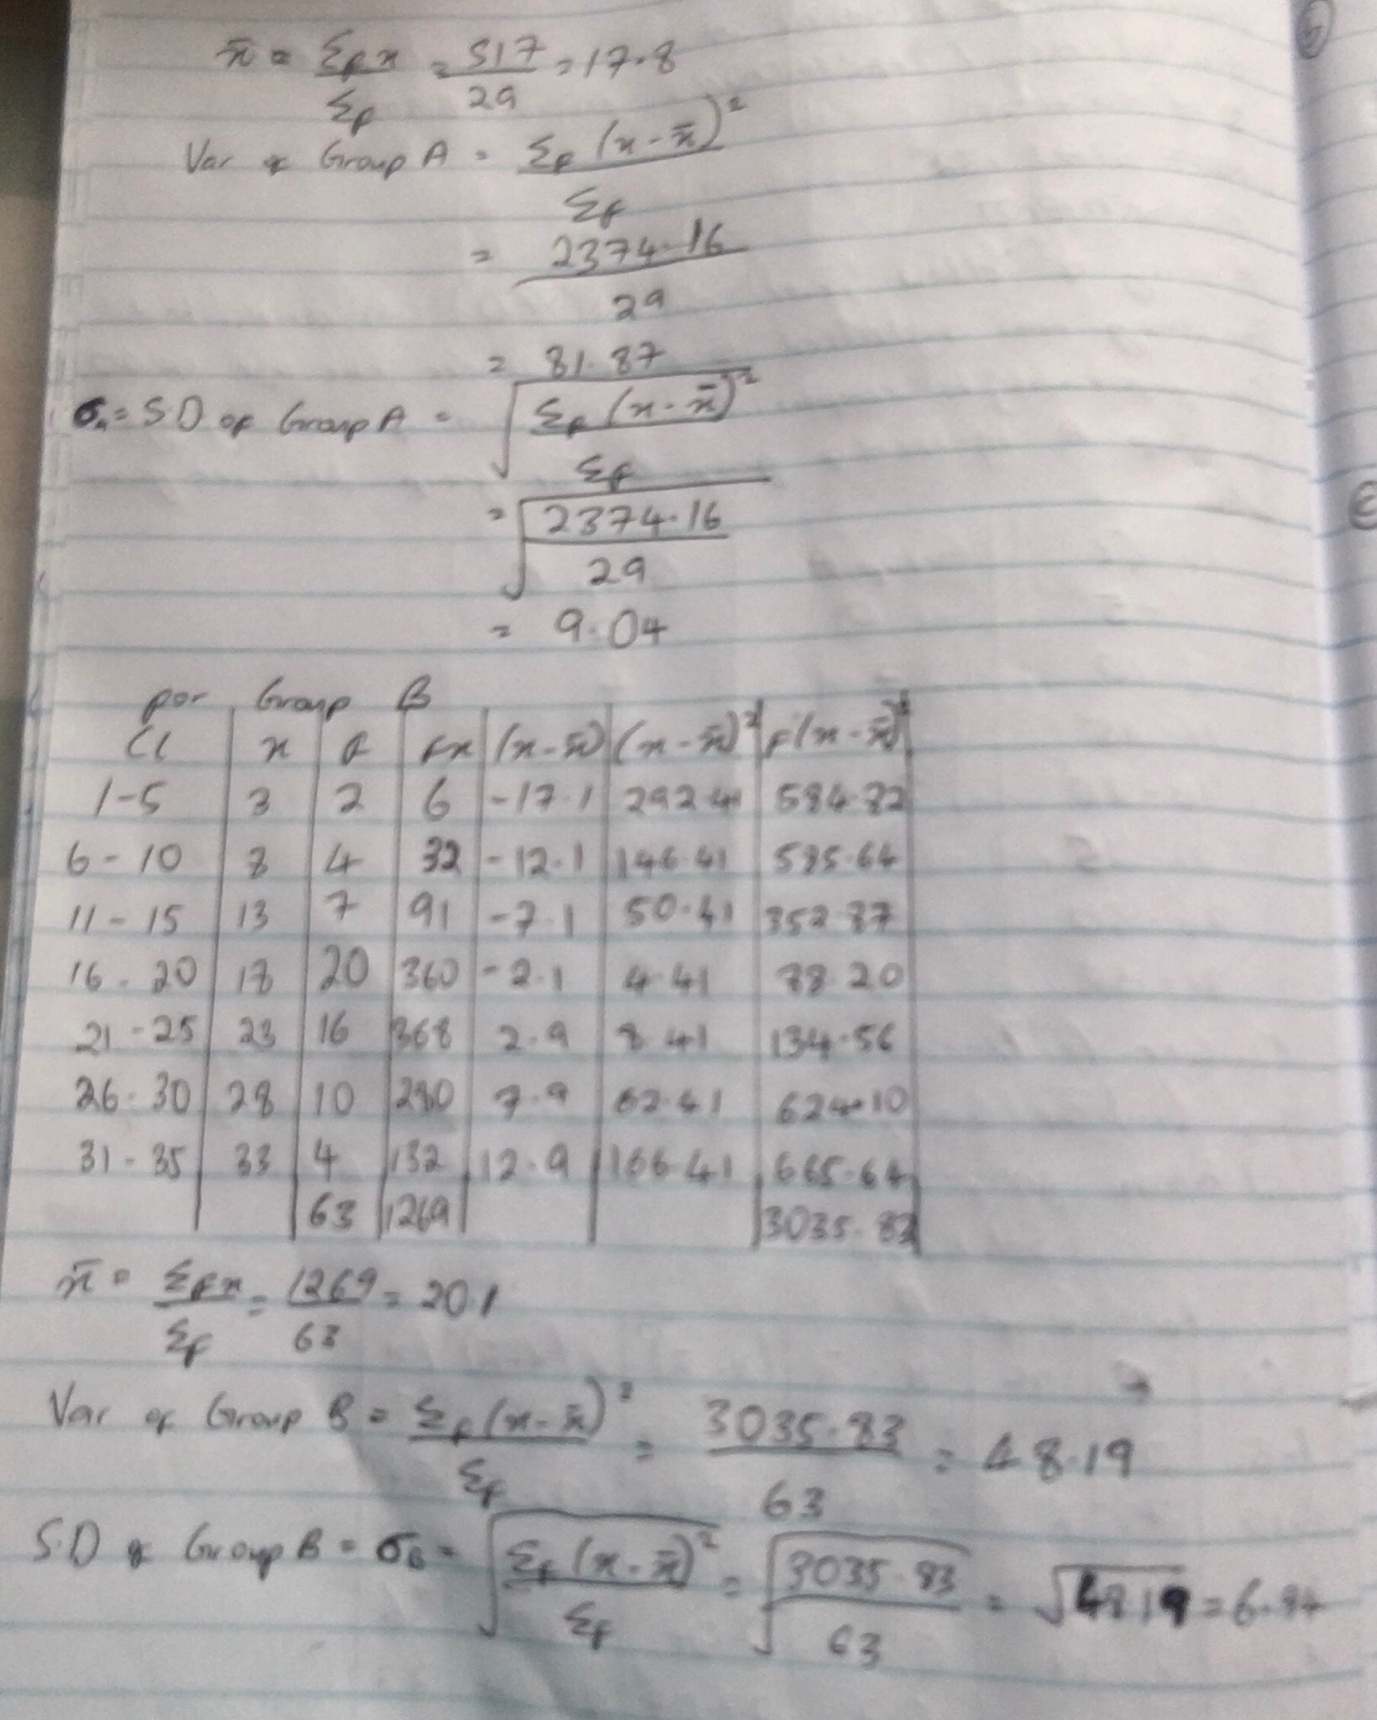 x̄ = Σfx/Σf = 517/29 = 17.8
Var of Group A = Σf(x-x̄)²/Σf
= 2374.16/29
= 81.87
σₐ = S.D of Group A = √(Σf(x-x̄)²/Σf)
= √(2374.16/29)
= 9.04
for Group B
CL x f fx (x-x̄) (x-x̄)² f(x-x̄)²
1-5 3 2 6 -17.1 292.41 584.82
6-10 8 4 32 -12.1 146.41 585.64
11-15 13 7 91 -7.1 50.41 352.87
16-20 18 20 360 -2.1 4.41 88.20
21-25 23 16 368 2.9 8.41 134.56
26-30 28 10 280 7.9 62.41 624.10
31-35 33 4 132 12.9 166.41 665.64
63 1269 3035.83
x̄ = Σfx/Σf = 1269/63 = 20.1
Var of Group B = Σf(x-x̄)²/Σf = 3035.83/63 = 48.19
S.D of Group B = σB = √(Σf(x-x̄)²/Σf) = √(3035.83/63) = √48.19 = 6.94